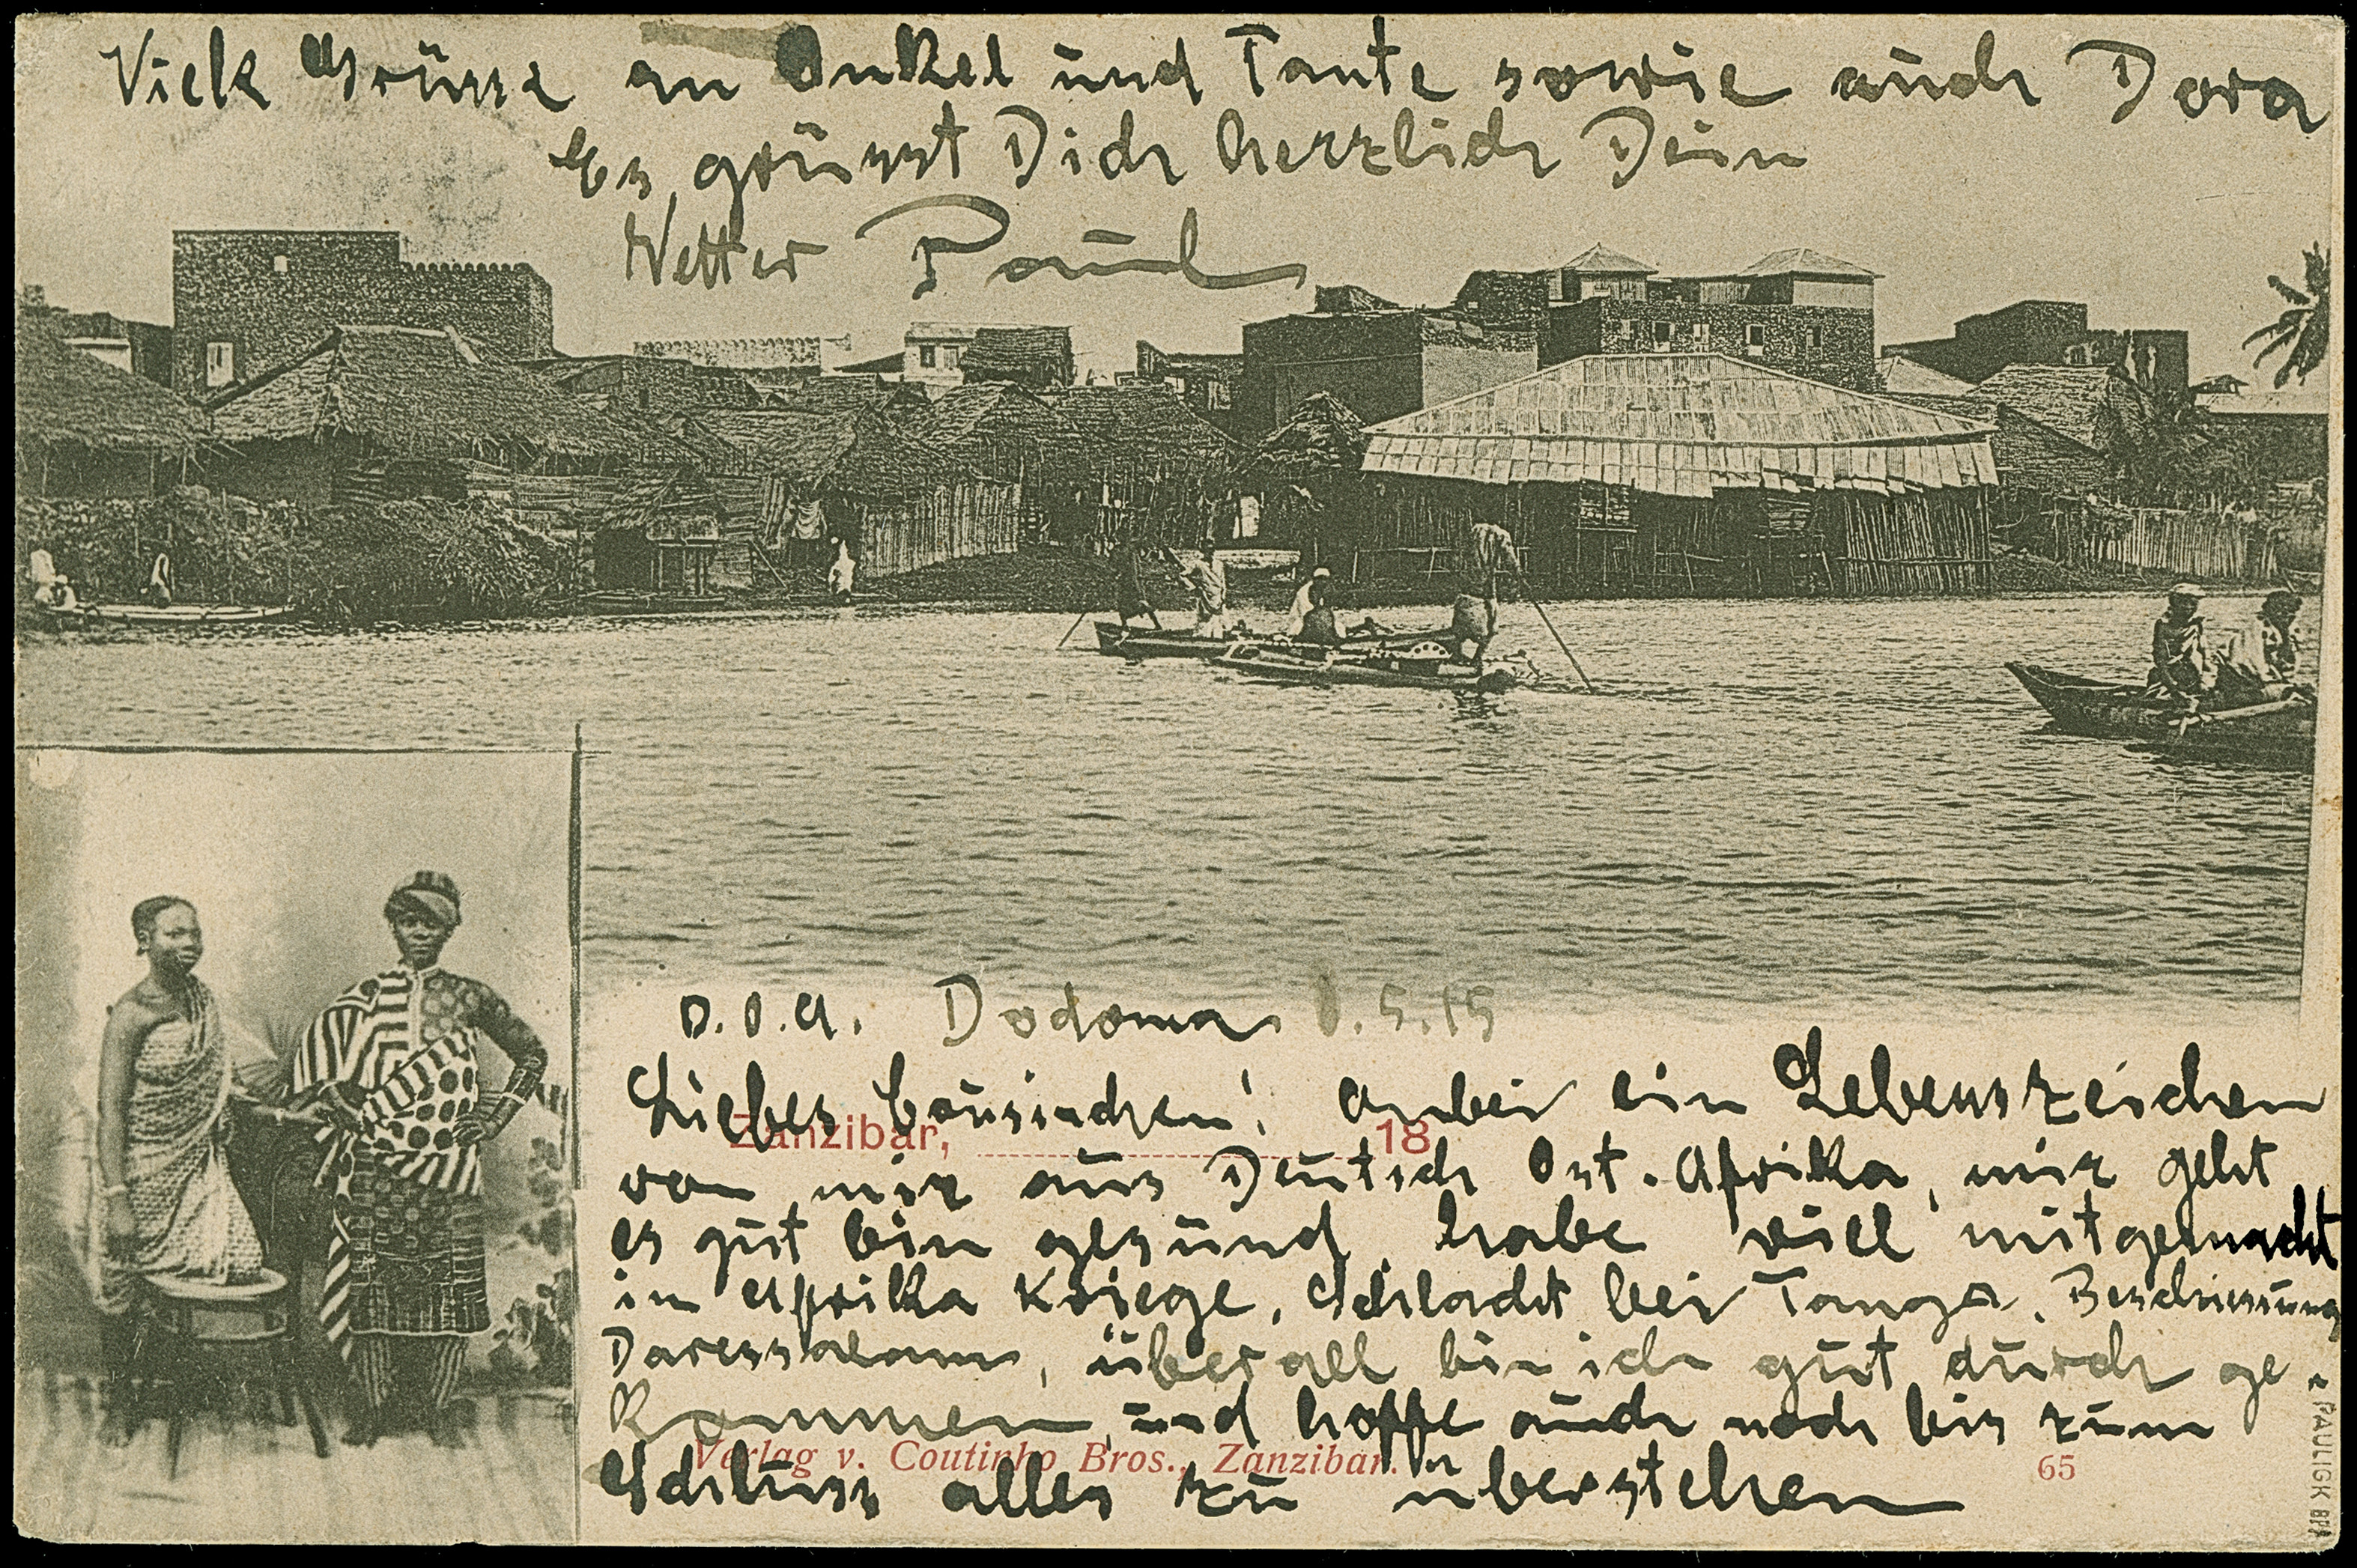 Viele Grüsse an Onkel und Tante sowie auch Dora
Es grüsst Dich herzlich Dein
Vetter Paul
D.O.A. Dodoma .5.15
Liebes Cousinchen! Anbei ein Lebenszeichen
Zanzibar, 18
von mir aus Deutsch Ost-Afrika, mir geht
es gut bin gesund, habe viel mitgemacht
im Afrika Kriege, Schlacht bei Tanga, Beschiessung
Daressalam, überall bin ich gut durch ge-
kommen, und hoffe auch noch bis zum
Verlag v. Coutinho Bros., Zanzibar. 65
Schluss alles zu überstehen
PAULIGK BPP